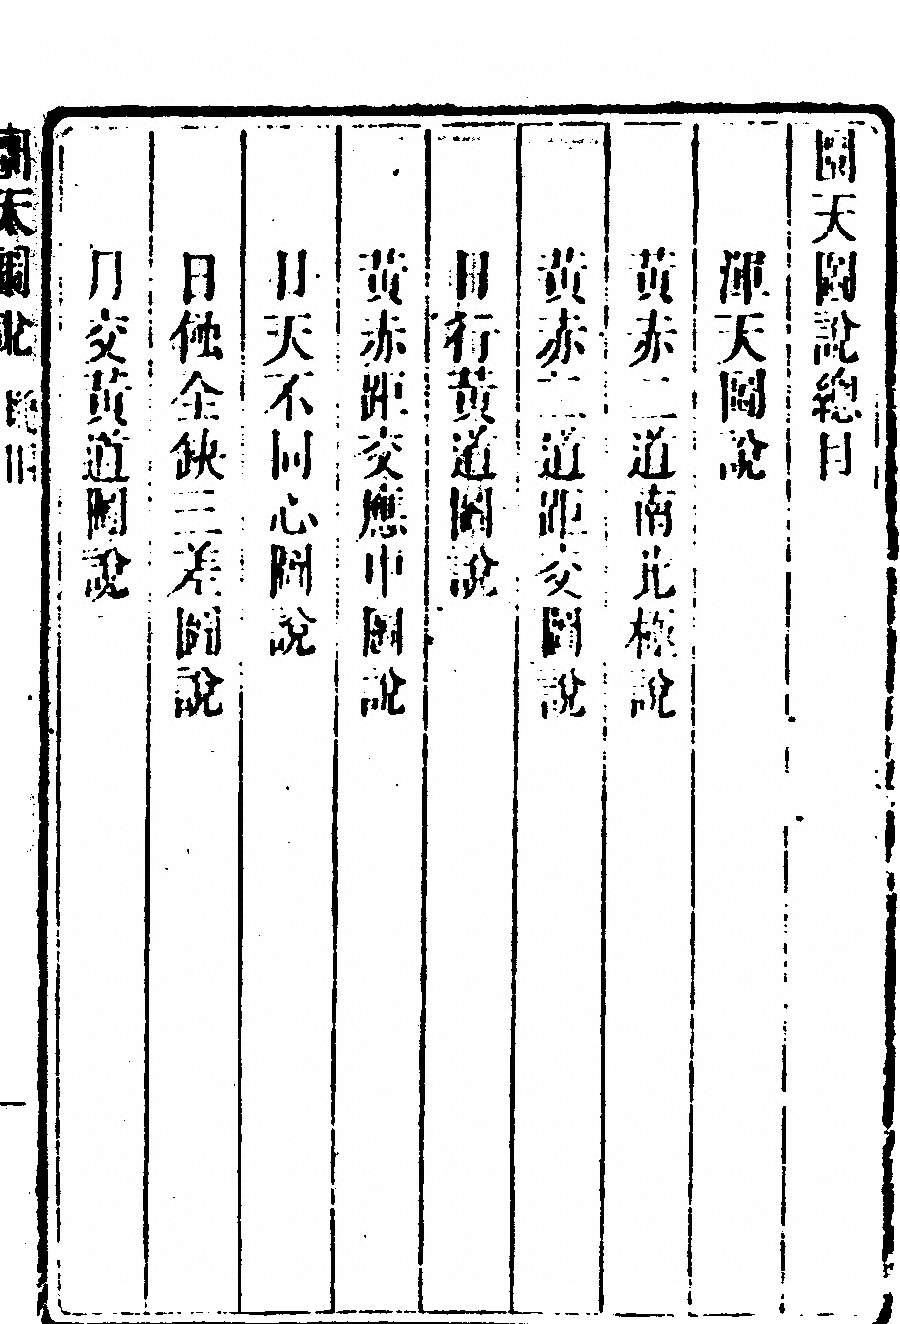 圜天圖說總目
渾天圖說
黃赤二道南北極說
黃赤二道距交圖說
日行黃道圖說
黃赤距交應中圖說
日天不同心圖說
日蝕全缺三差圖說
月交黃道圖說
圜天圖說 總目
一